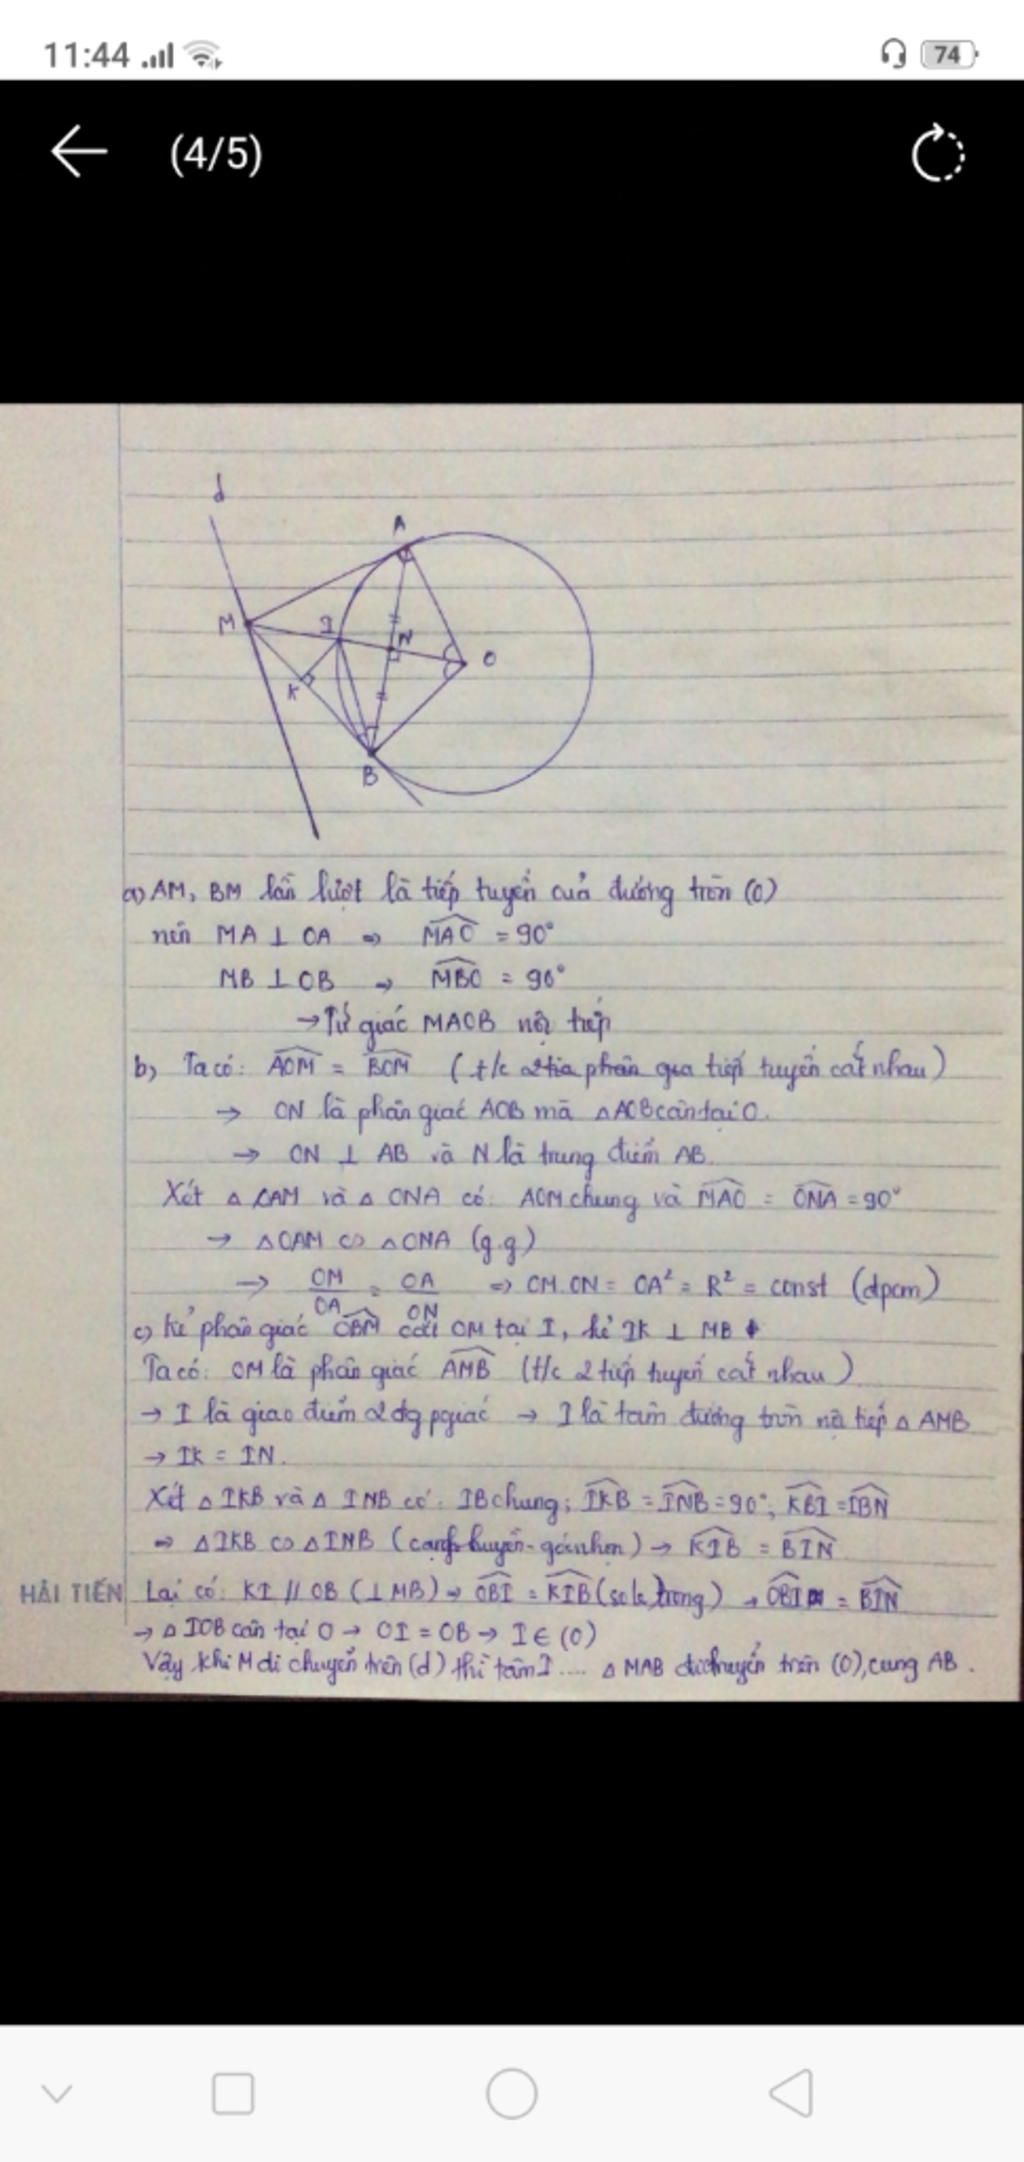 11:44
74
(4/5)
d
A
M
I
N
O
K
B
a) AM, BM lần lượt là tiếp tuyến cuả đường tròn (O)
nên MA ⊥ OA => MAO = 90°
MB ⊥ OB → MBO = 90°
→ Tứ giác MAOB nội tiếp
b) Ta có: AOM = BOM (t/c 2 tia phân qua tiếp tuyến cắt nhau)
→ ON là phân giác AOB mà △AOB cân tại O.
→ ON ⊥ AB và N là trung điểm AB.
Xét △ OAM và △ ONA có: AOM chung và MAO = ONA = 90°
→ △OAM ∽ △ONA (g.g)
→ OM/OA = OA/ON => OM.ON = OA² = R² = const (dpcm)
c) Kẻ phân giác OBM cắt OM tại I, kẻ IK ⊥ MB
Ta có: OM là phân giác AMB (t/c 2 tiếp tuyến cắt nhau)
→ I là giao điểm 2 đg pgiác → I là tâm đường tròn nội tiếp △ AMB
→ IK = IN.
Xét △ IKB và △ INB có: IB chung; IKB = INB = 90°; KBI = IBN
=> △IKB ∽ △INB (cạnh huyền - góc nhọn) → KIB = BIN
HẢI TIẾN Lại có: KI // OB (⊥ MB) => OBI = KIB (so le trong) → OBI = BIN
→ △ IOB cân tại O → OI = OB → I ∈ (O)
Vậy khi M di chuyển trên (d) thì tâm I .... △ MAB di chuyển trên (O), cung AB.